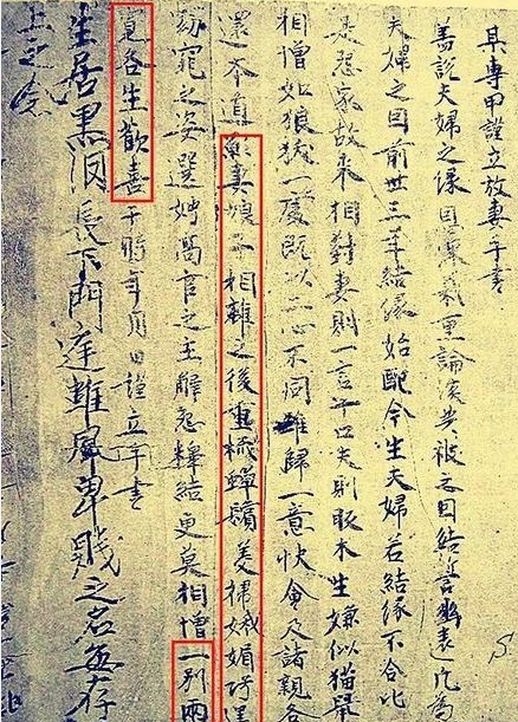 某專甲謹立放妻手書
蓋說夫婦之緣恩深義重論談共被之因結誓幽遠凡為
夫婦之因前世三年結緣始配今生夫婦若結緣不合比
是怨家故來相對妻則一言十口夫則反木生嫌似猫鼠
相憎如狼狢一處既以二心不同難歸一意快會及諸親各
還本道願妻娘子相離之後重梳蟬鬢美掃娥媚巧逞
窈窕之姿選娉高官之主解怨釋結更莫相憎一別兩
寬各生歡喜于時年月日謹立手書
生居黑長下門庭雖處卑賤之名每存
上之念
S.